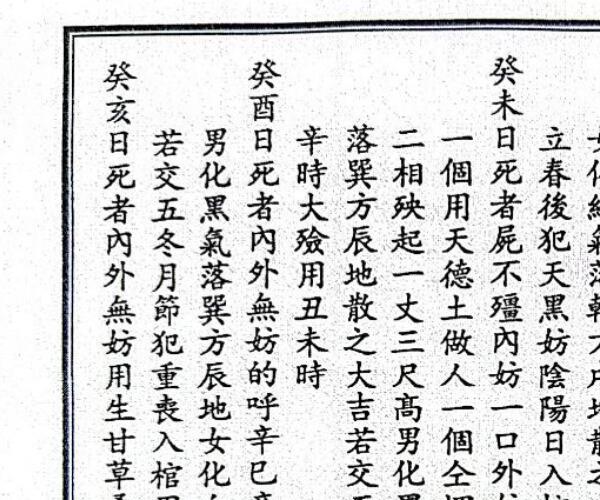 女化紅氣落乾方戌地散之
立春後犯天黑妨陰陽日入
癸未日死者屍不殭內妨一口外
一個用天德土做人一個仝
二相殃起一丈三尺高男化黑
落巽方辰地散之大吉若交
辛時大殮用丑未時
癸酉日死者內外無妨的呼辛巳
男化黑氣落巽方辰地女化
若交五冬月節犯重喪入棺
癸亥日死者內外無妨用生甘草